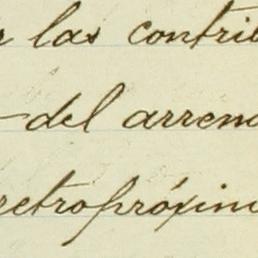 r las contri
- del arren
retropróxim